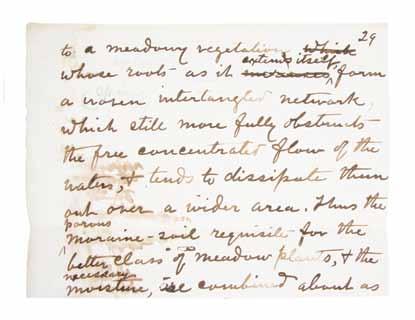 29
to a meadowy vegetation which
whose roots as it extends itself, form
a woven intertangled network,
which still more fully obstructs
the free concentrated flow of the
waters, & tends to dissipate them
out over a wider area. Thus the
porous
moraine-soil requisite for the
better class of meadow plants, & the
necessary
moisture, are combined about as